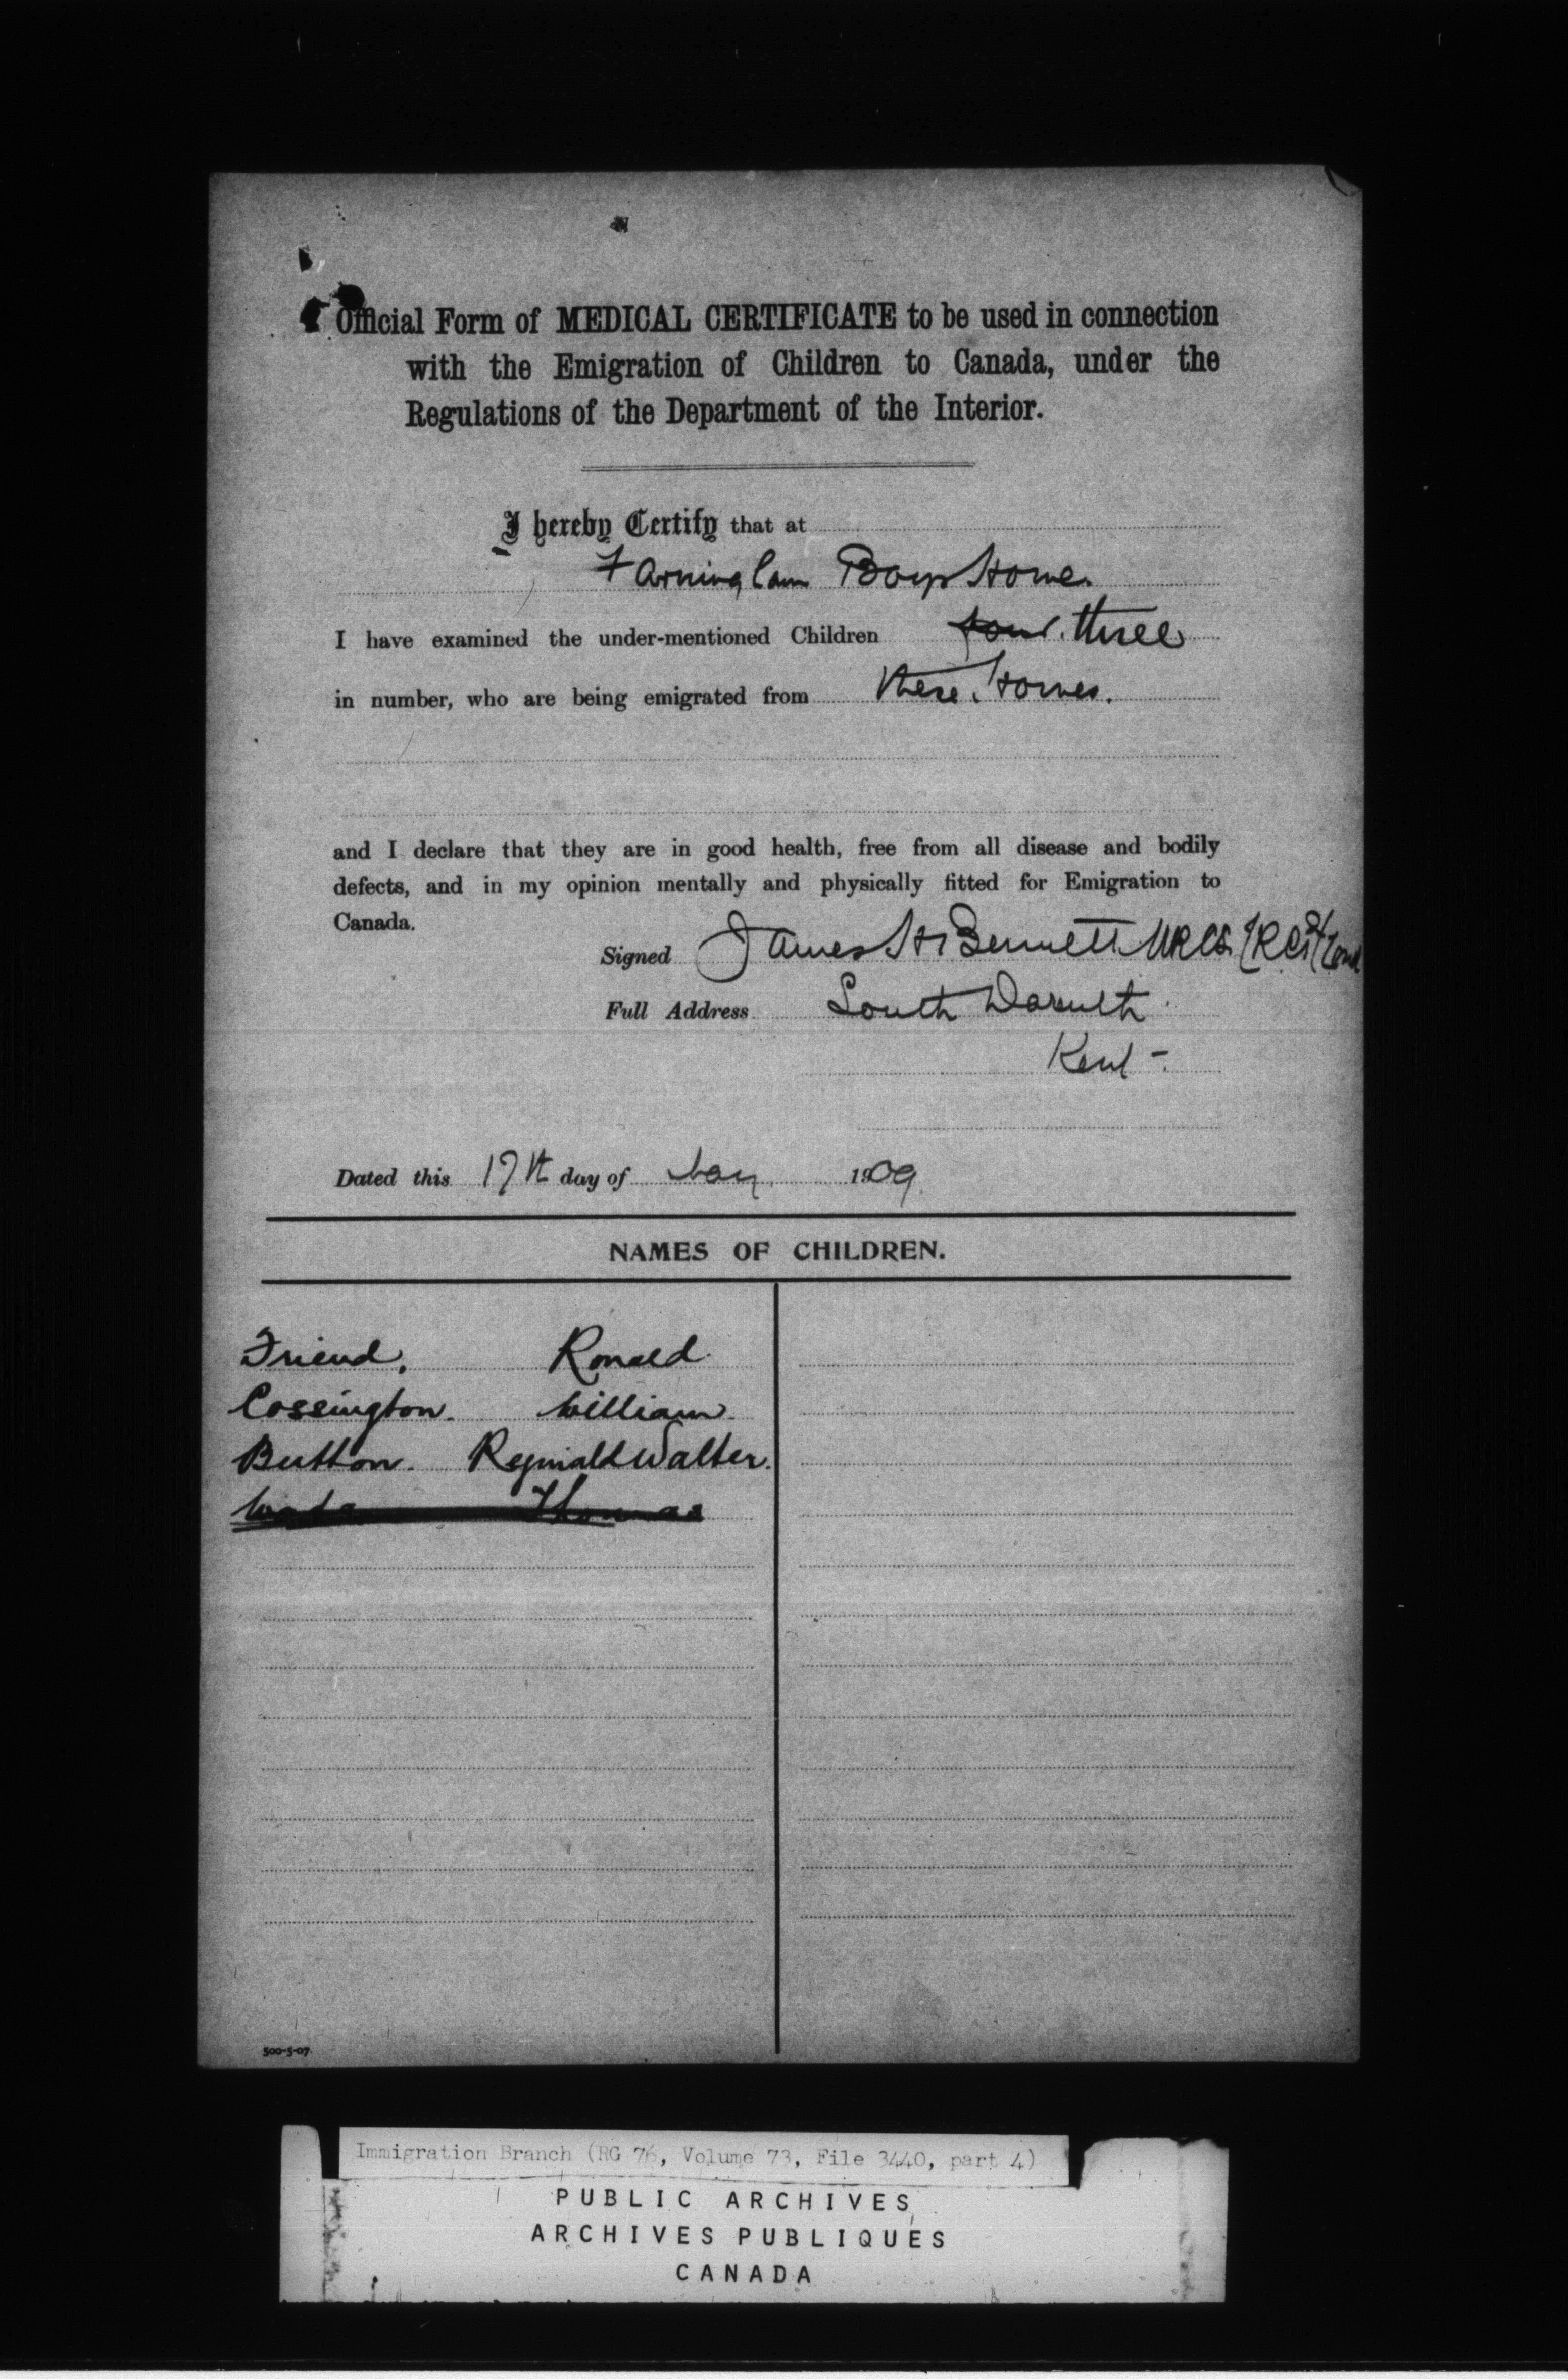 Official Form of MEDICAL CERTIFICATE to be used in connection
with the Emigration of Children to Canada, under the
Regulations of the Department of the Interior.
I hereby Certify that at
Farningham Boys Home.
I have examined the under-mentioned Children four. three
in number, who are being emigrated from these Homes.
and I declare that they are in good health, free from all disease and bodily
defects, and in my opinion mentally and physically fitted for Emigration to
Canada.
Signed James H Bennett MRCS. LRCP Lond
Full Address South Darenth
Kent -
Dated this 17th day of May 1909.
NAMES OF CHILDREN.
Friend, Ronald
Cossington. William.
Button. Reginald Walter.
Thomas
500-5-07
Immigration Branch (RG 76, Volume 73, File 3440, part 4)
PUBLIC ARCHIVES
ARCHIVES PUBLIQUES
CANADA